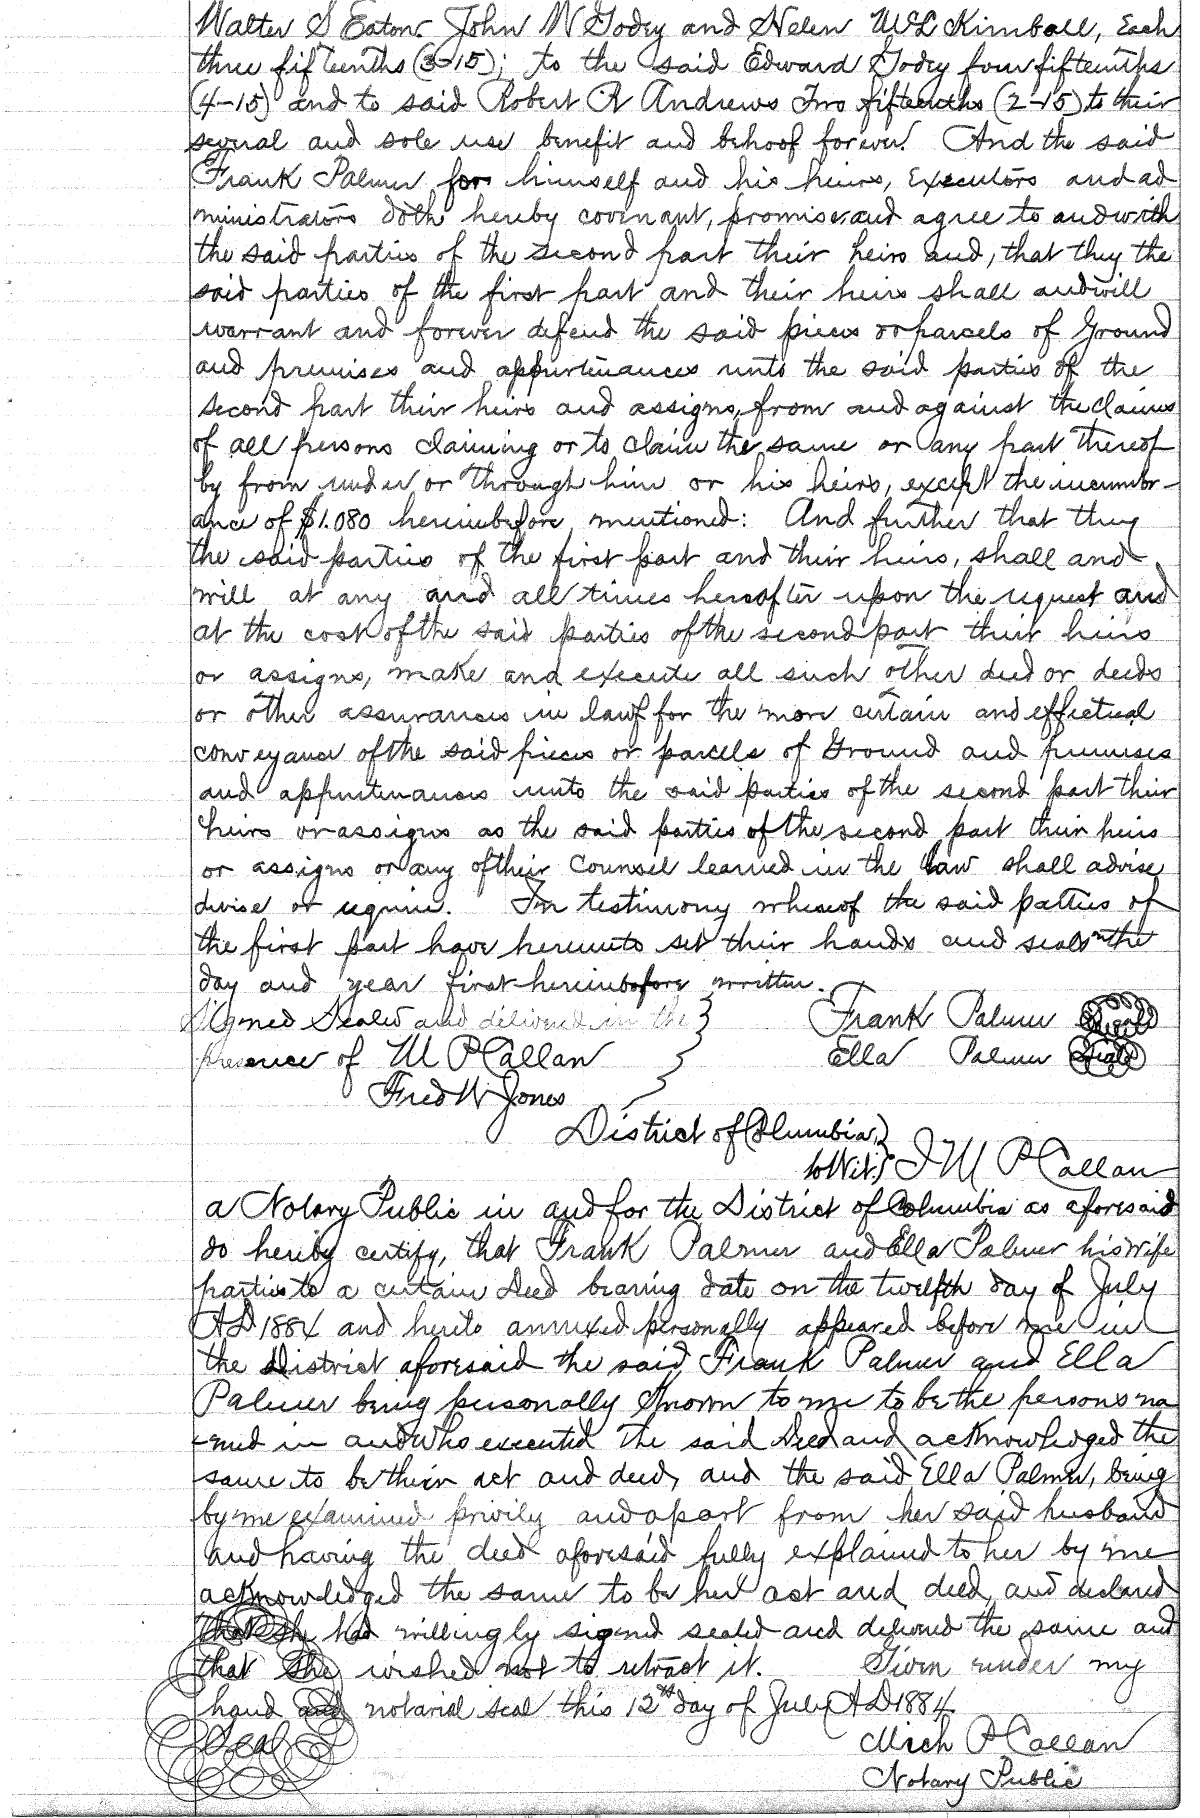 Walter S Eaton. John W Godey and Helen McL Kimball, Each
three fifteenths (3-15); to the said Edward Godey four fifteenths
(4-15) and to said Robert R Andrews Two fifteenths (2-15) to their
several and sole use benefit and behoof forever. And the said
Frank Palmer for himself and his heirs, Executors and ad
ministrators doth hereby covenant, promise and agree to and with
the said parties of the second part their heirs and, that they the
said parties of the first part and their heirs shall and will
warrant and forever defend the said pieces or parcels of Ground
and premises and appurtenances unto the said parties of the
second part their heirs and assigns, from and against the claims
of all persons claiming or to claim the same or any part thereof
by from under or through him or his heirs, except the incumbr-
ance of $1.080 hereinbefore mentioned: And further that they
the said parties of the first part and their heirs, shall and
will at any and all times hereafter upon the request and
at the cost of the said parties of the second part their heirs
or assigns, make and execute all such other deed or deeds
or other assurances in law for the more certain and effectual
conveyance of the said pieces or parcels of Ground and premises
and appurtenances unto the said parties of the second part their
heirs or assigns as the said parties of the second part their heirs
or assigns or any of their Counsel learned in the law shall advise
devise or require. In testimony whereof the said patties of
the first part have hereunto set their hands and seals on the
day and year first hereinbefore written.
Signed Sealed and delivered in the } Frank Palmer Seal
presence of M P Callan } Ella Palmer Seal
Fred W Jones
District of Columbia, }
to Wit: } I M P Callan
a Notary Public in and for the District of Columbia as aforesaid
do hereby certify, that Frank Palmer and Ella Palmer his wife
parties to a certain Deed bearing date on the twelfth day of July
AD 1884 and hereto annexed personally appeared before me in
the District aforesaid the said Frank Palmer and Ella
Palmer being personally known to me to be the persons na
-med in and who executed the said Deed and acknowledged the
same to be their act and deed, and the said Ella Palmer, being
by me examined privily and apart from her said husband
and having the deed aforesaid fully explained to her by me
acknowledged the same to be her act and deed, and declared
that she had willingly signed sealed and delivered the same and
that She wished not to retract it. Given under my
hand and notarial seal this 12th day of July AD 1884.
Seal Mich P Callan
Notary Public